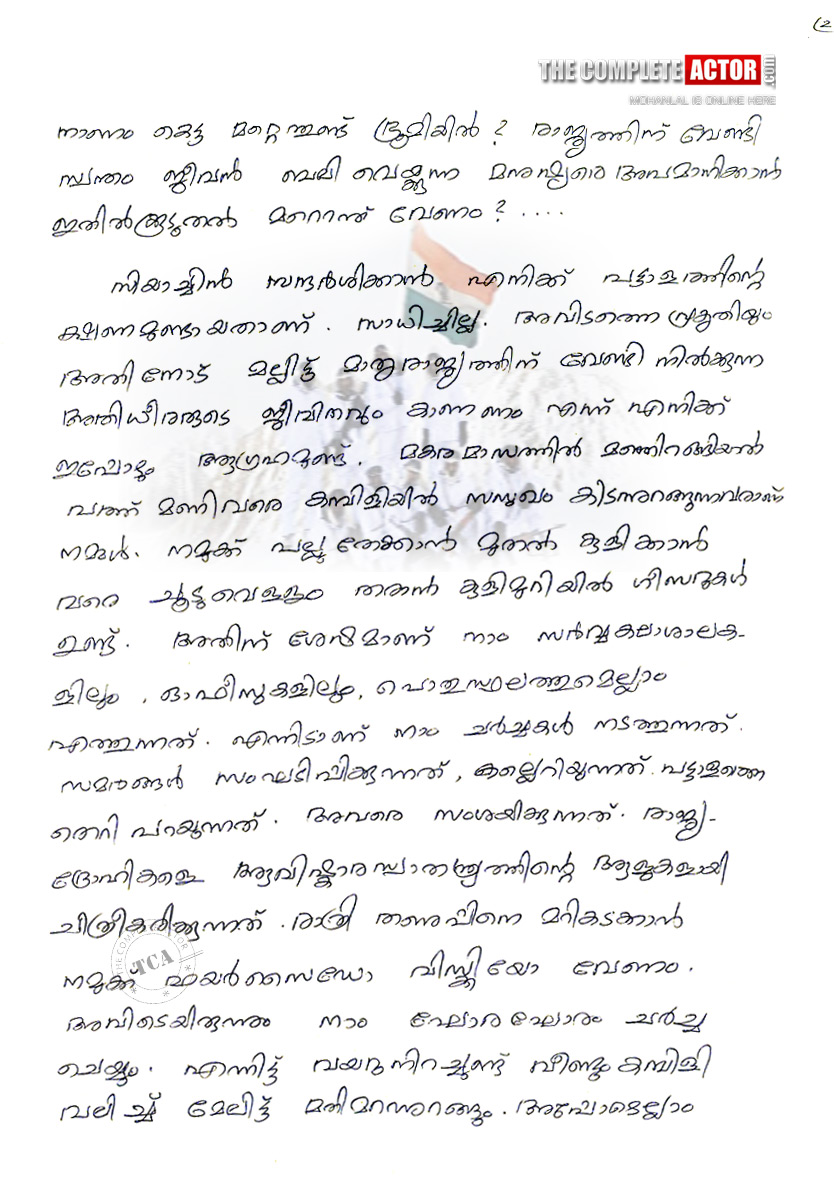 (2
THE COMPLETE ACTOR .com
MOHANLAL IS ONLINE HERE
നാണം കെട്ട മറ്റെന്തുണ്ട് ഭൂമിയിൽ ? രാജ്യത്തിന് വേണ്ടി
സ്വന്തം ജീവൻ ബലി വെയ്ക്കുന്ന മനുഷ്യരെ അപമാനിക്കാൻ
ഇതിൽക്കൂടുതൽ മറ്റെന്ത് വേണം ? ....
സിയാച്ചിൻ സന്ദർശിക്കാൻ എനിക്ക് പട്ടാളത്തിന്റെ
ക്ഷണമുണ്ടായതാണ് . സാധിച്ചില്ല. അവിടത്തെ പ്രകൃതിയും
അതിനോട് മല്ലിട്ട് മാതൃരാജ്യത്തിന് വേണ്ടി നിൽക്കുന്ന
അതിധീരരുടെ ജീവിതവും കാണണം എന്ന് എനിക്ക്
ഇപ്പോഴും ആഗ്രഹമുണ്ട്. മകരമാസത്തിൽ മഞ്ഞിറങ്ങിയാൽ
പത്ത് മണിവരെ കമ്പിളിയിൽ സസുഖം കിടന്നുറങ്ങുന്നവരാണ്
നമ്മൾ. നമുക്ക് പല്ലുതേക്കാൻ മുതൽ കുളിക്കാൻ
വരെ ചൂടുവെള്ളം തരാൻ കുളിമുറിയിൽ ഗീസറുകൾ
ഉണ്ട്. അതിന് ശേഷമാണ് നാം സർവ്വകലാശാലക-
ളിലും , ഓഫീസുകളിലും, പൊതുസ്ഥലത്തുമെല്ലാം
എത്തുന്നത്. എന്നിട്ടാണ് നാം ചർച്ചകൾ നടത്തുന്നത്.
സമരങ്ങൾ സംഘടിപ്പിക്കുന്നത് , കല്ലെറിയുന്നത്. പട്ടാളത്തെ
തെറി പറയുന്നത്. അവരെ സംശയിക്കുന്നത്. രാജ്യ-
ദ്രോഹികളെ ആവിഷ്കാരസ്വാതന്ത്ര്യത്തിന്റെ ആളുകളായി
ചിത്രീകരിക്കുന്നത്. രാത്രി തണുപ്പിനെ മറികടക്കാൻ
നമുക്ക് ഫയർസൈഡോ വിസ്കിയോ വേണം.
അവിടെയിരുന്നും നാം ഘോരഘോരം ചർച്ച
ചെയ്യും. എന്നിട്ട് വയറുനിറച്ചുണ്ട് വീണ്ടും കമ്പിളി
വലിച്ച് മേലിട്ട് മതിമറന്നുറങ്ങും. അപ്പോഴെല്ലാം
THE COMPLETE ACTOR
TCA